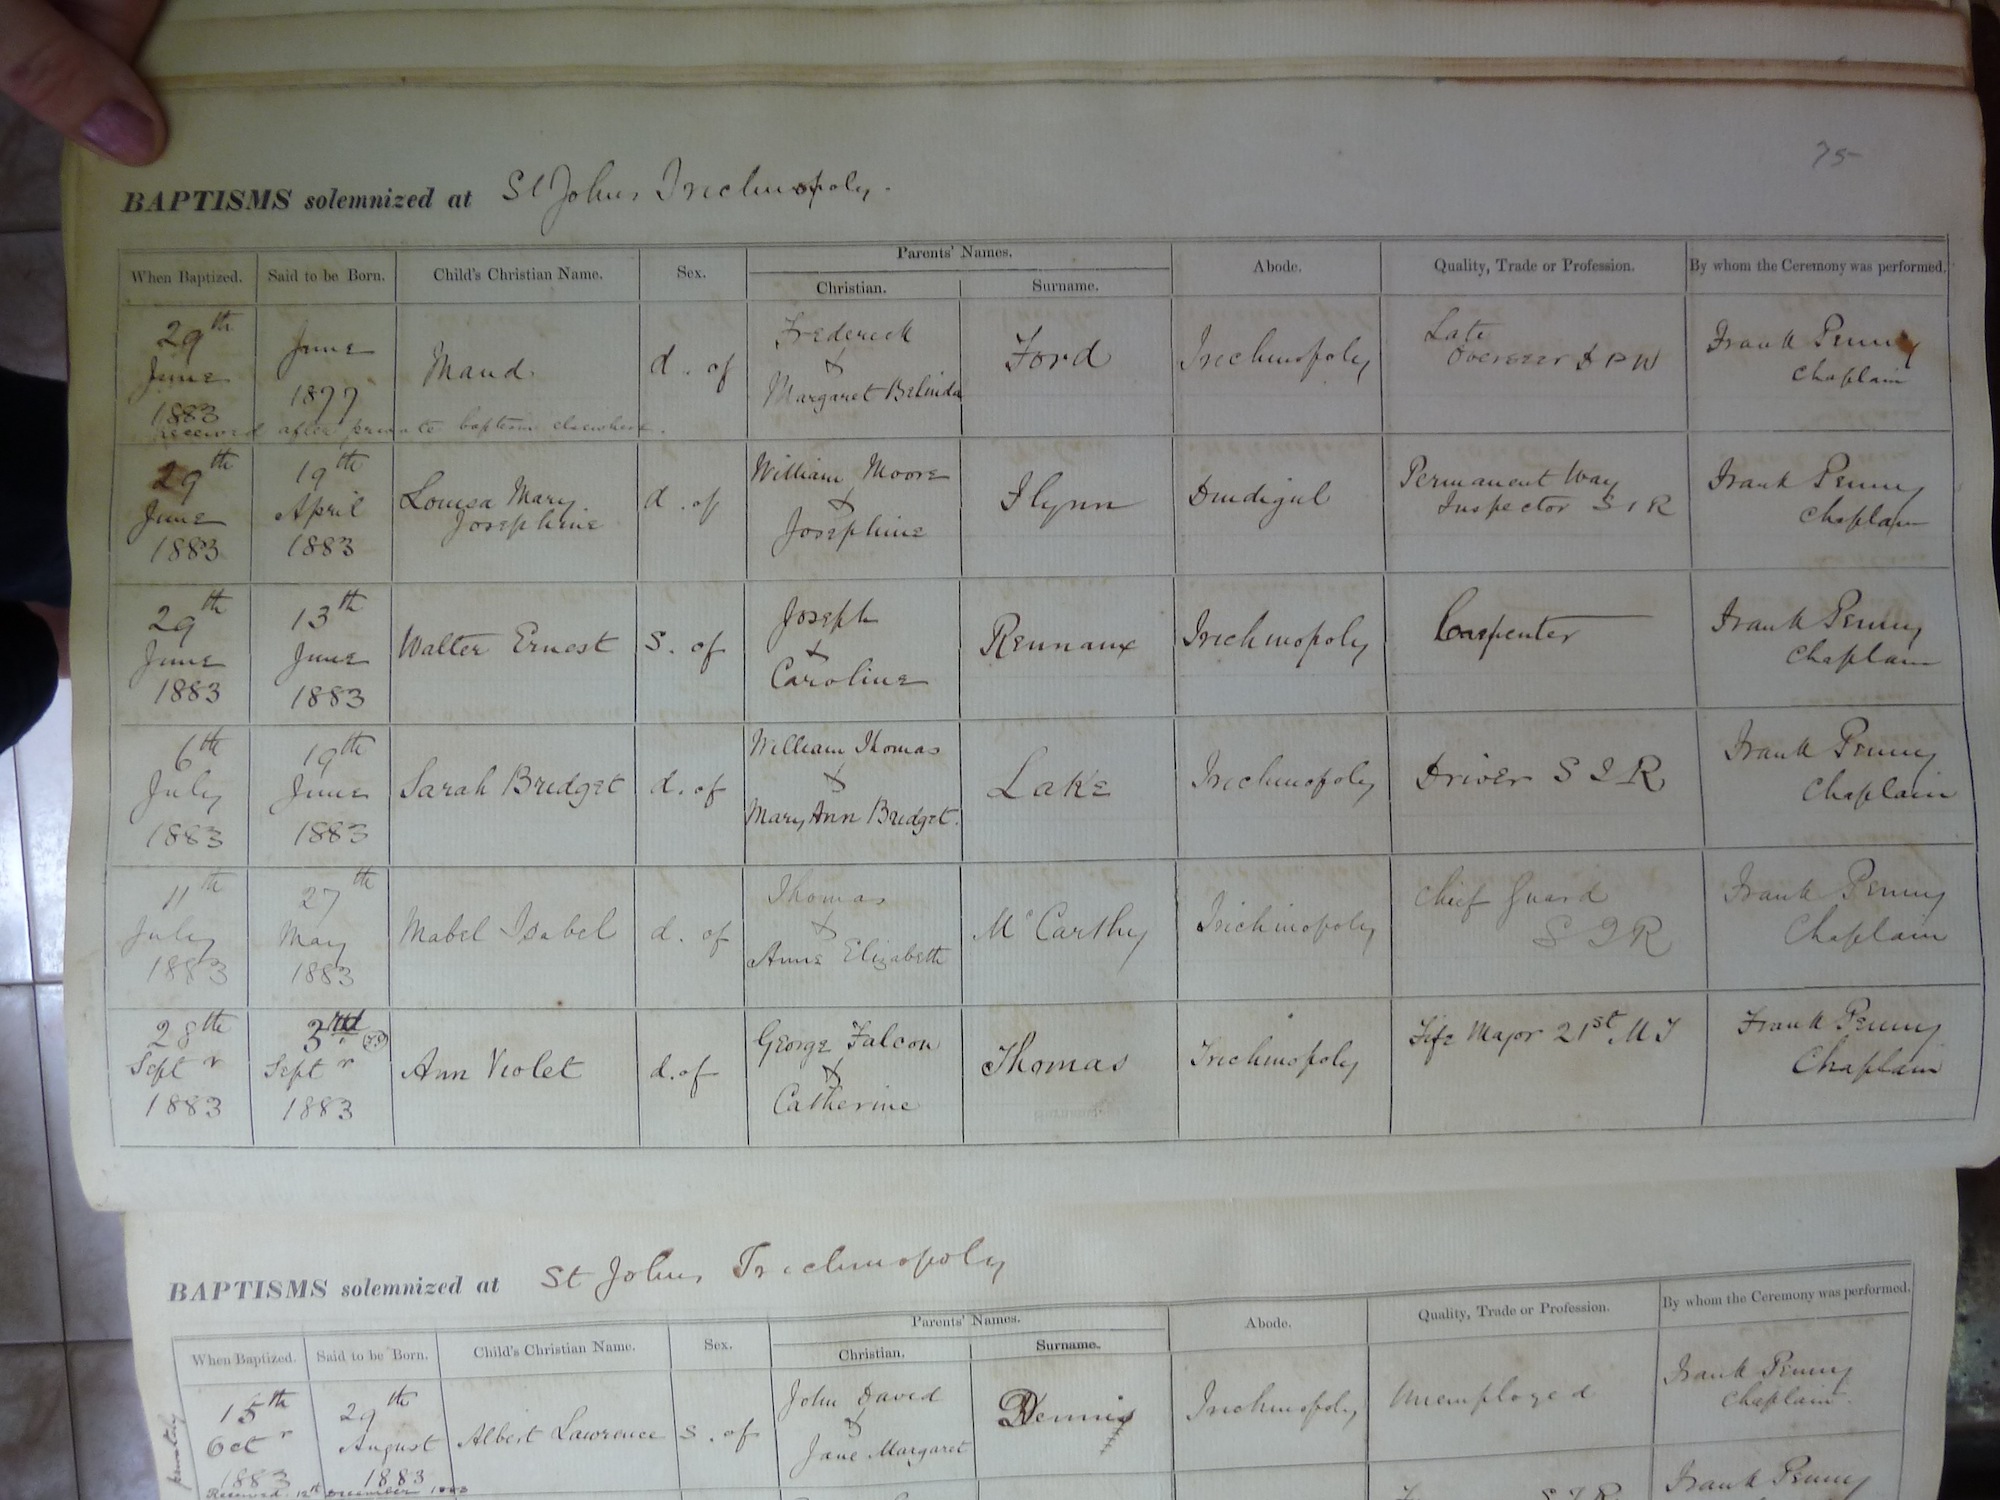 75
BAPTISMS solemnized at St Johns, Trichinopoly.
When Baptized. Said to be Born. Child's Christian Name. Sex. Parents' Names. Abode. Quality, Trade or Profession. By whom the Ceremony was performed.
Christian. Surname.
29th June 1883
June 1877
Maud.
d. of
Frederick
&
Margaret Belinda
Ford
Trichinopoly
Late
Overseer D P W
Frank Penny
Chaplain
Received after private baptism elsewhere.
29th June 1883
19th April 1883
Louisa Mary
Josephine
d. of
William Moore
&
Josephine
Flynn
Dindigul
Permanent Way
Inspector S I R
Frank Penny
Chaplain
29th June 1883
13th June 1883
Walter Ernest
S. of
Joseph
&
Caroline
Rennaux
Trichinopoly
Carpenter
Frank Penny
Chaplain
6th July 1883
19th June 1883
Sarah Bridget
d. of
William Thomas
&
Mary Ann Bridget.
Lake
Trichinopoly
Driver S I R
Frank Penny
Chaplain
11th July 1883
27th May 1883
Mabel Isabel
d. of
Thomas
&
Anne Elizabeth
McCarthy
Trichinopoly
Chief Guard
S I R
Frank Penny
Chaplain
28th Septr 1883
3rd Septr 1883
Ann Violet
d. of
George Falcon
&
Catherine
Thomas
Trichinopoly
Fife Major 21st M I
Frank Penny
Chaplain
BAPTISMS solemnized at St Johns, Trichinopoly
When Baptized. Said to be Born. Child's Christian Name. Sex. Parents' Names. Abode. Quality, Trade or Profession. By whom the Ceremony was performed.
Christian. Surname.
privately
15th Octr 1883
29th August 1883
Albert Lawrence
S. of
John David
&
Jane Margaret
Dennis
Trichinopoly
Unemployed
Frank Penny
Chaplain
Received 12th December 1883
S I R
Frank Penny